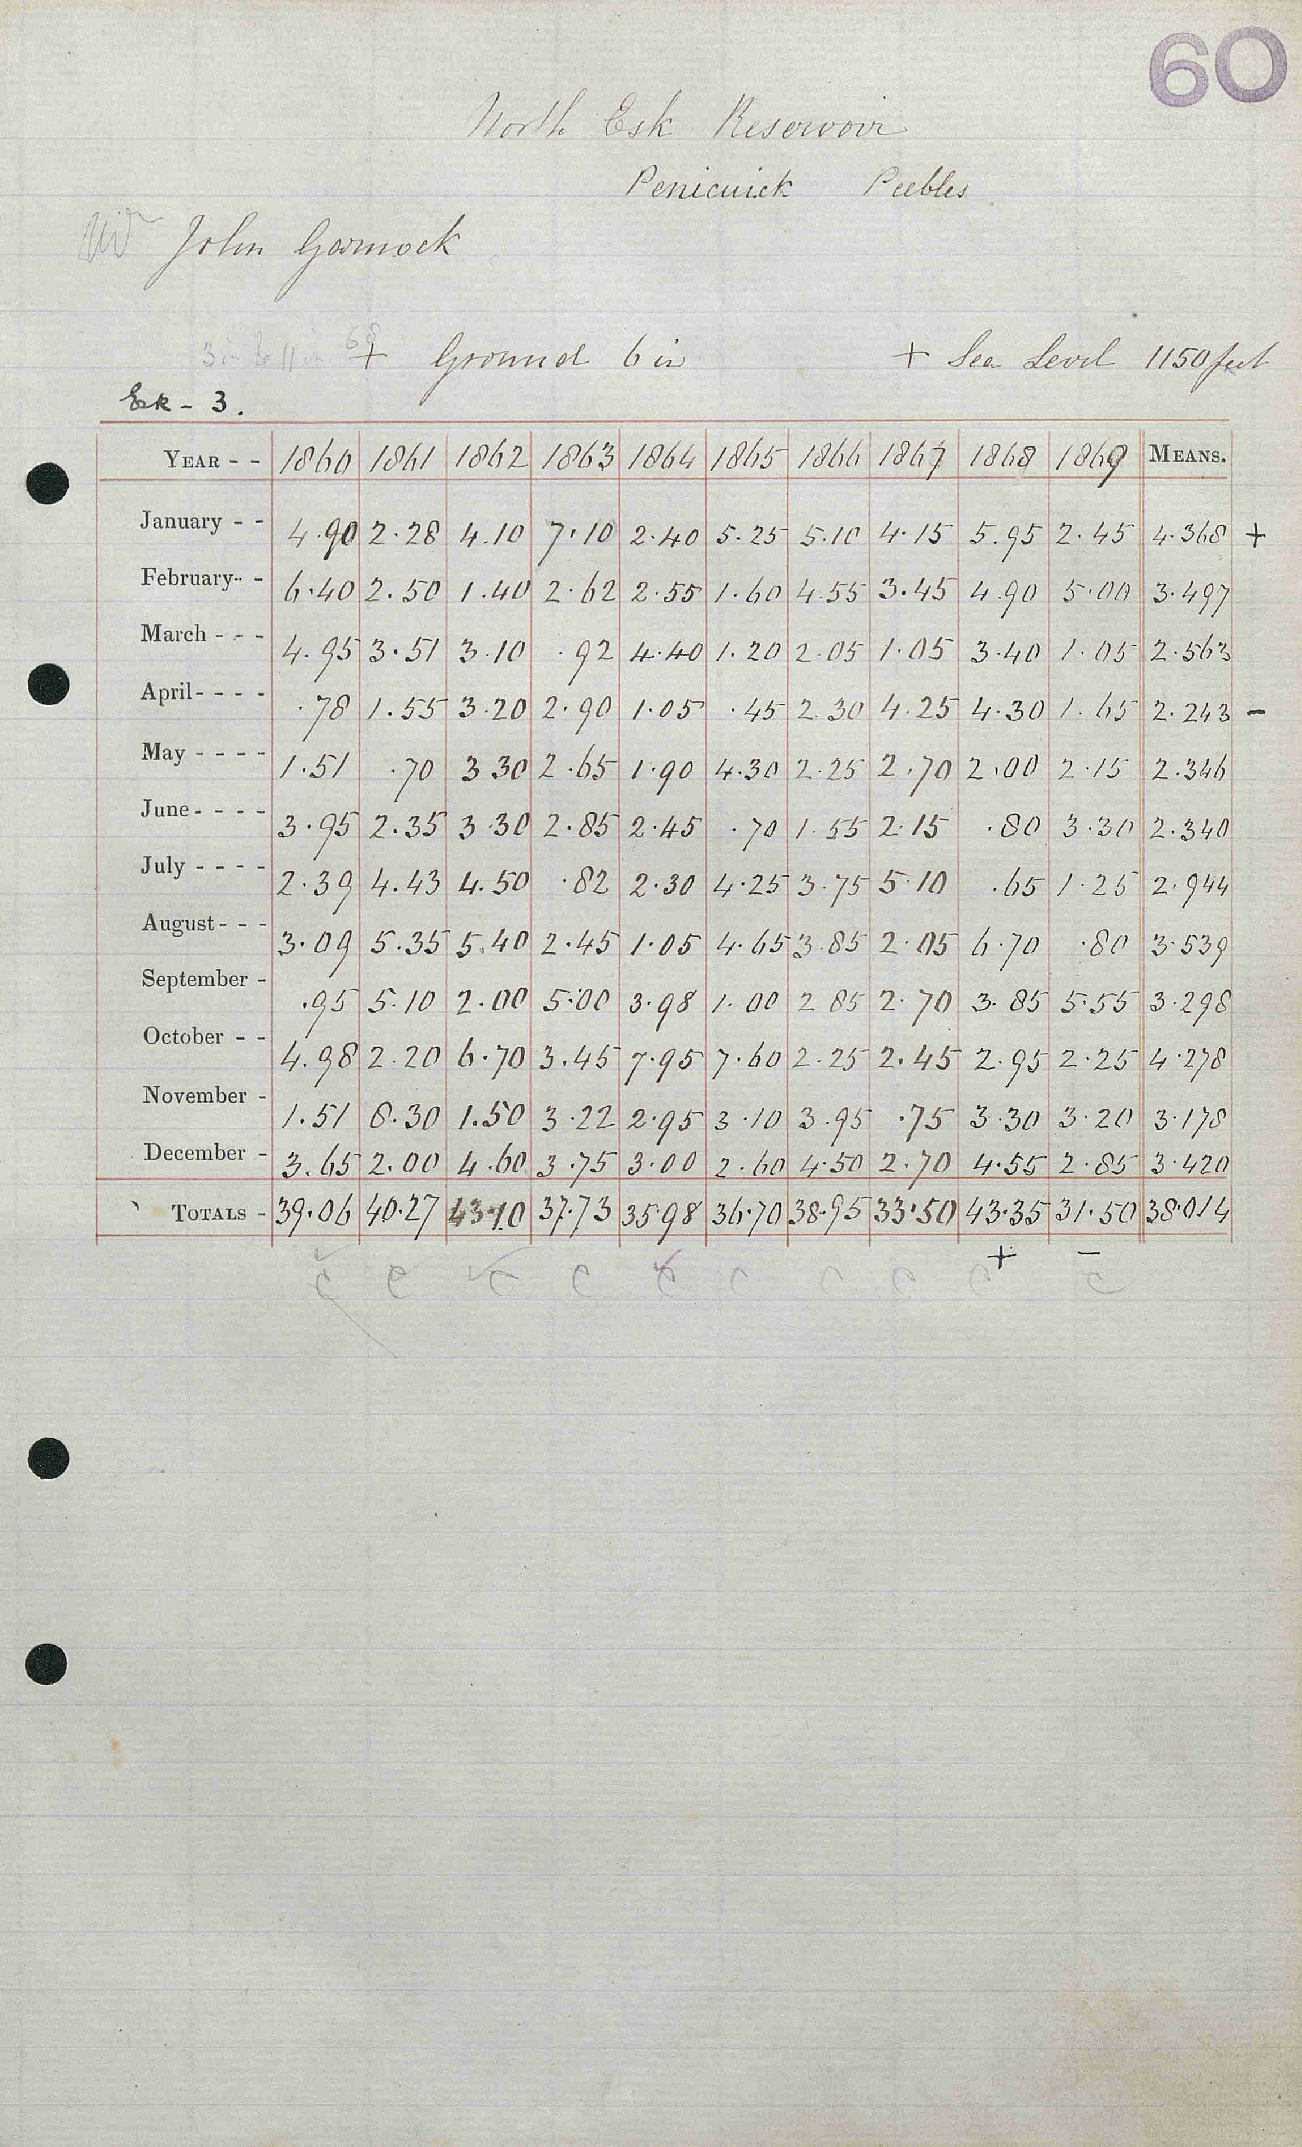 60
North Esk Reservoir
Penicuick Peebles
John Garnock
+ Ground 6 in + Sea Level 1150 feet
Ek - 3.
YEAR - - 1860 1861 1862 1863 1864 1865 1866 1867 1868 1869 MEANS.
January - - 4.90 2.28 4.10 7.10 2.40 5.25 5.10 4.15 5.95 2.45 4.368 +
February - - 6.40 2.50 1.40 2.62 2.55 1.60 4.55 3.45 4.90 5.00 3.497
March - - - 4.95 3.51 3.10 .92 4.40 1.20 2.05 1.05 3.40 1.05 2.563
April - - - - .78 1.55 3.20 2.90 1.05 .45 2.30 4.25 4.30 1.65 2.243 -
May - - - - 1.51 .70 3.30 2.65 1.90 4.30 2.25 2.70 2.00 2.15 2.346
June - - - - 3.95 2.35 3.30 2.85 2.45 .70 1.55 2.15 .80 3.30 2.340
July - - - - 2.39 4.43 4.50 .82 2.30 4.25 3.75 5.10 .65 1.25 2.944
August - - - 3.09 5.35 5.40 2.45 1.05 4.65 3.85 2.05 6.70 .80 3.539
September - .95 5.10 2.00 5.00 3.98 1.00 2.85 2.70 3.85 5.55 3.298
October - - 4.98 2.20 6.70 3.45 7.95 7.60 2.25 2.45 2.95 2.25 4.278
November - 1.51 8.30 1.50 3.22 2.95 3.10 3.95 .75 3.30 3.20 3.178
December - 3.65 2.00 4.60 3.75 3.00 2.60 4.50 2.70 4.55 2.85 3.420
TOTALS - 39.06 40.27 43.10 37.73 35.98 36.70 38.95 33.50 43.35 31.50 38.014
+ -
c c c c c c c c c c